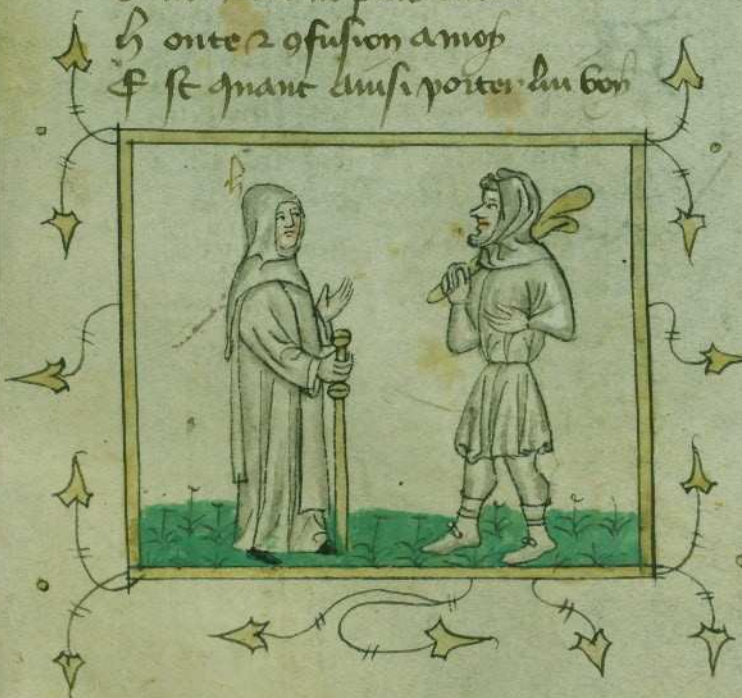 H onte ⁊ ꝯfusion a moy
E st quant ainsi porter lui voy